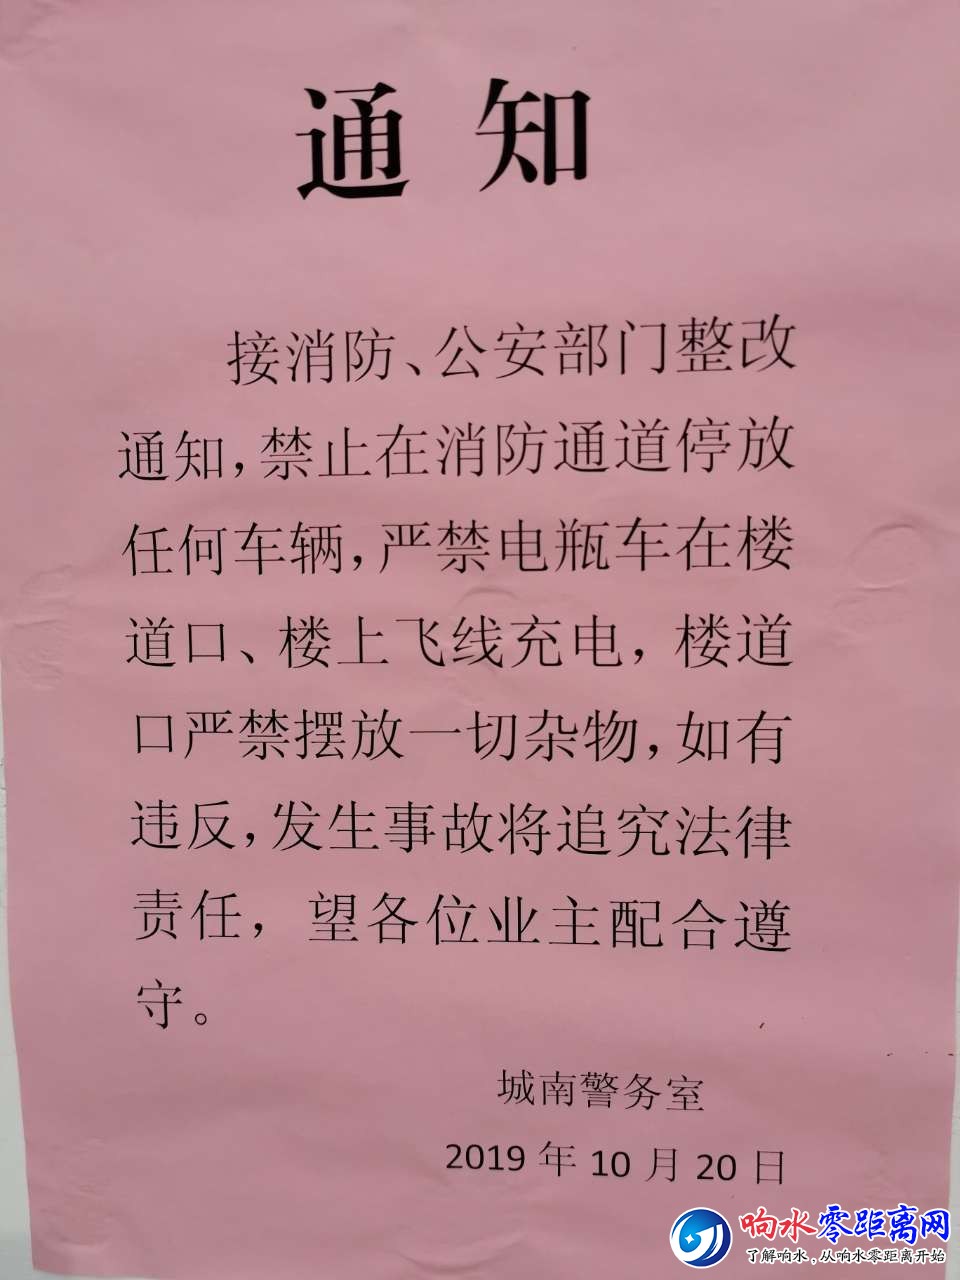 通知
接消防、公安部门整改
通知,禁止在消防通道停放
任何车辆,严禁电瓶车在楼
道口、楼上飞线充电,楼道
口严禁摆放一切杂物,如有
违反,发生事故将追究法律
责任,望各位业主配合遵
守。
城南警务室
2019年10月20日
响水零距离网
了解响水,从响水零距离开始